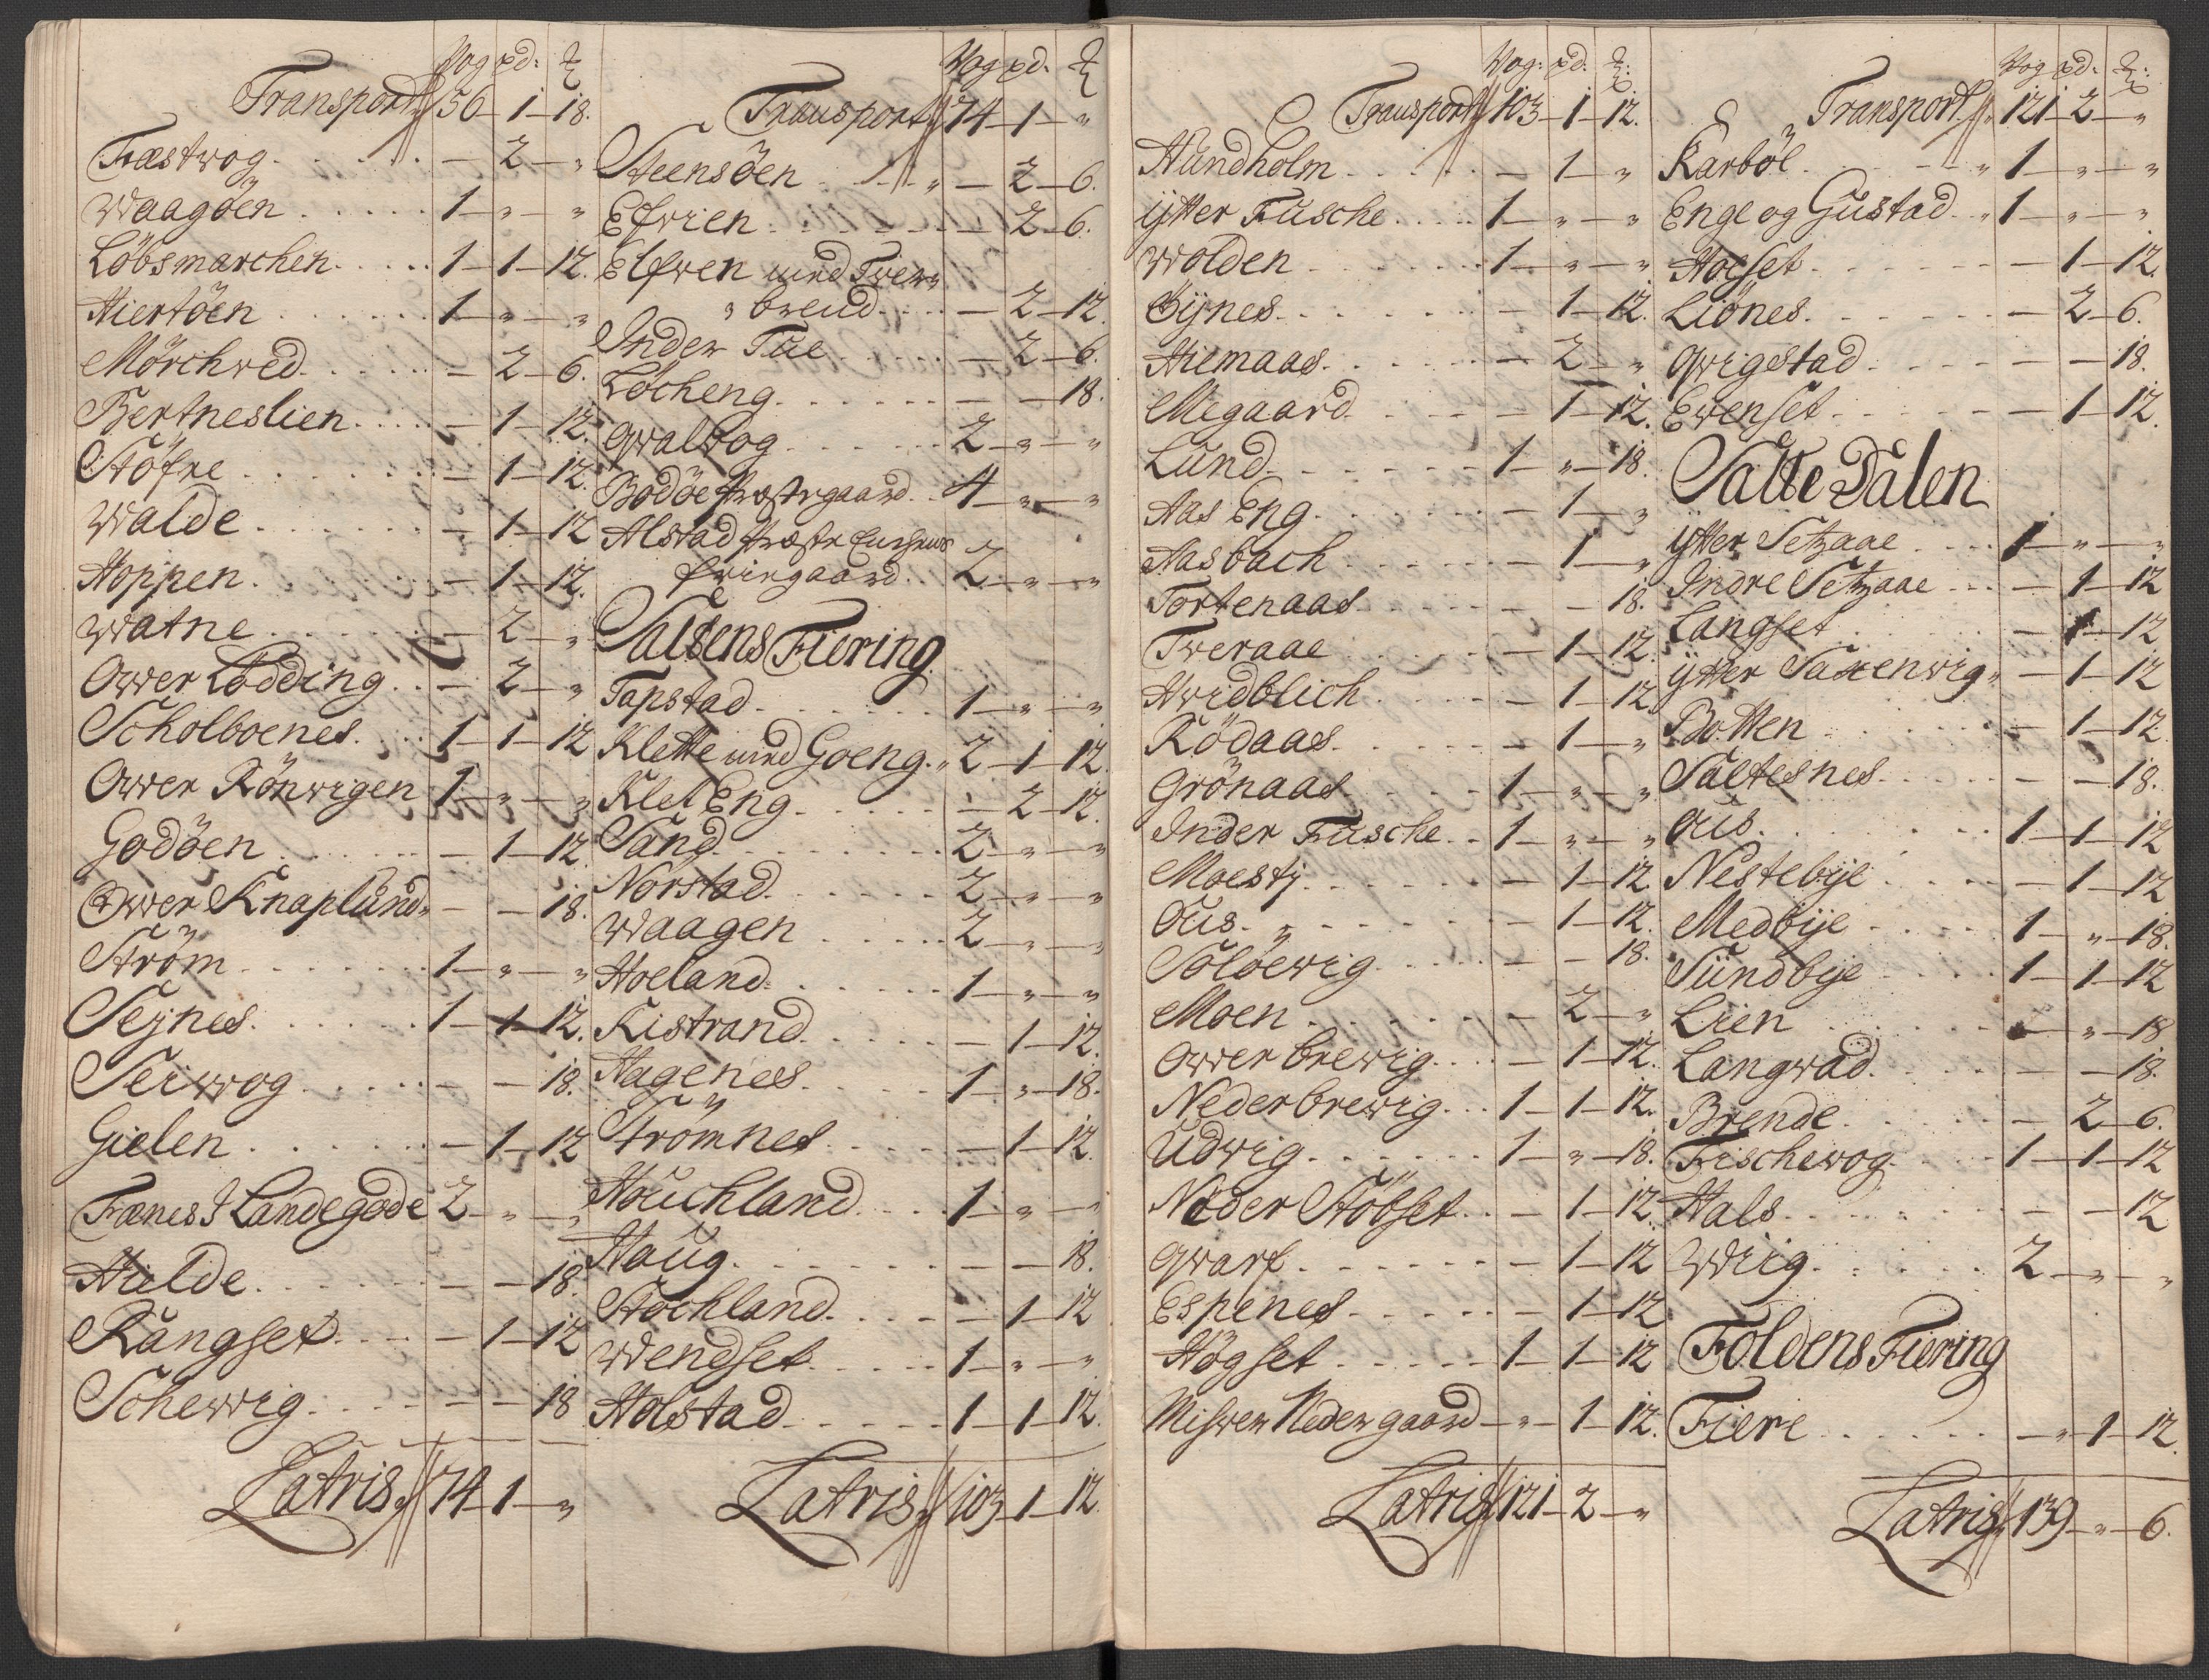 Vog pd: ℔
Transport 56 - 1 - 18.
Fæstwog - 2 - "
Waagöen 1 - " - "
Löbsmarchen 1 - 1 - 12.
Hiertöen 1 - " - "
Mörchwed - 2 - 6.
Bertneslien - 1 - 12.
Stöfre - 1 - 12.
Walde - 1 - 12
Hoppen - 1 - 12.
Watne - 2 - "
Ower Lödding - 2 - "
Scholboenes 1 - 1 - 12
Ower Rönwigen 1 - " - "
Godöen - 1 - 12.
Ower Knaplund - - 18.
Ström 1 - " - "
Sejnes 1 - 1 - 12.
Seiwog - - 18.
Gielen - 1 - 12
Fænes I Landegode 2 - " - "
Hielde - - 18
Rangset - 1 - 12
Schewig - - 18
Latris 74 - 1 - "
Vog pd. ℔
Transport 74 - 1 - "
Steensöen " - 2 - 6.
Efwien - 2 - 6.
Elfwen und Twer
" breud - 2 - 12.
Inder Tue - 2 - 6.
Löcheng - - 18.
Qwalwog 2 - " - "
Bodöe Præstegaard 4 - " - "
Alstad Præste Enchens
frirgaard 2 - " - "
Saltens Fiering
Tapstad 1 - " - "
Klette und Goeng " 2 - 1 - 12.
Klet Eng - 2 - 12.
Sand 2 - " - "
Norstad 2 - " - "
Waagen 2 - " - "
Hoeland 1 - " - "
Kistrand - 1 - 12.
Hagenes 1 - " - 18.
Strömnes - 1 - 12.
Houchland 1 - " - "
Haug - - 18.
Stochland - 1 - 12
Wendset 1 - " - "
Holstad 1 - 1 - 12.
Latris 103 - 1 - 12.
Vog: pd: ℔:
Transport 103 - 1 - 12.
Hundholm - 1 - "
ytter Fusche 1 - " - "
Wolden 1 - " - "
Bijnes - 1 - 12.
Hiemaas - 2 - "
Megaard - 1 - 12.
Lund 1 - " - 18.
Aas Eng - 1 - "
Aasbach - 1 - "
Tortenaas - - 18.
Tweraae - 1 - 12.
Hwidblich - 1 - 12.
Rödaas - 1 - "
Grönaas 1 - " - "
Inder Fusche 1 - " - "
Moestj - 1 - 12
Ous " - 1 - 12.
Solöewig - - 18.
Moen - 2 - "
Ower brewig - 1 - 12.
Nederbrewig 1 - 1 - 12.
Udwig 1 - " - 18.
Neder Stöbset - 1 - 12.
Qwarf - 1 - 12
Espenes - 1 - 12.
Högset 1 - 1 - 12
Miswer Nedergaard - " - 1 - 12.
Latris 121 - 2 - "
Vog pd: ℔:
Transport 121 - 2 - "
Karböl " 1 - " - "
Enge og Gustad " 1 - " - "
Hoeset - 1 - 12.
Liönes - 2 - 6.
Qwigstad - - 18.
Ewenset - 1 - 12.
Salte Dalen
ytter Setzaae 1 - " - "
Indre Setzaae - 1 - 12
Langset - 1 - 12
ytter Saxenwig " - 1 - 12
Botten - 1 - 12.
Saltesnes - - 18.
Ous 1 - 1 - 12
Nestebije - 1 - 12
Medbije 1 - " - 18.
Sundbije 1 - 1 - 12
Lien - " - 18
Langwad - - 18.
Brende - 2 - 6.
Fischewog 1 - 1 - 12
Hals - - 12
Wiig 2 - " - "
Foldens Fiering
Fiere - " 1 - 12.
Latris 139 - " - 6.